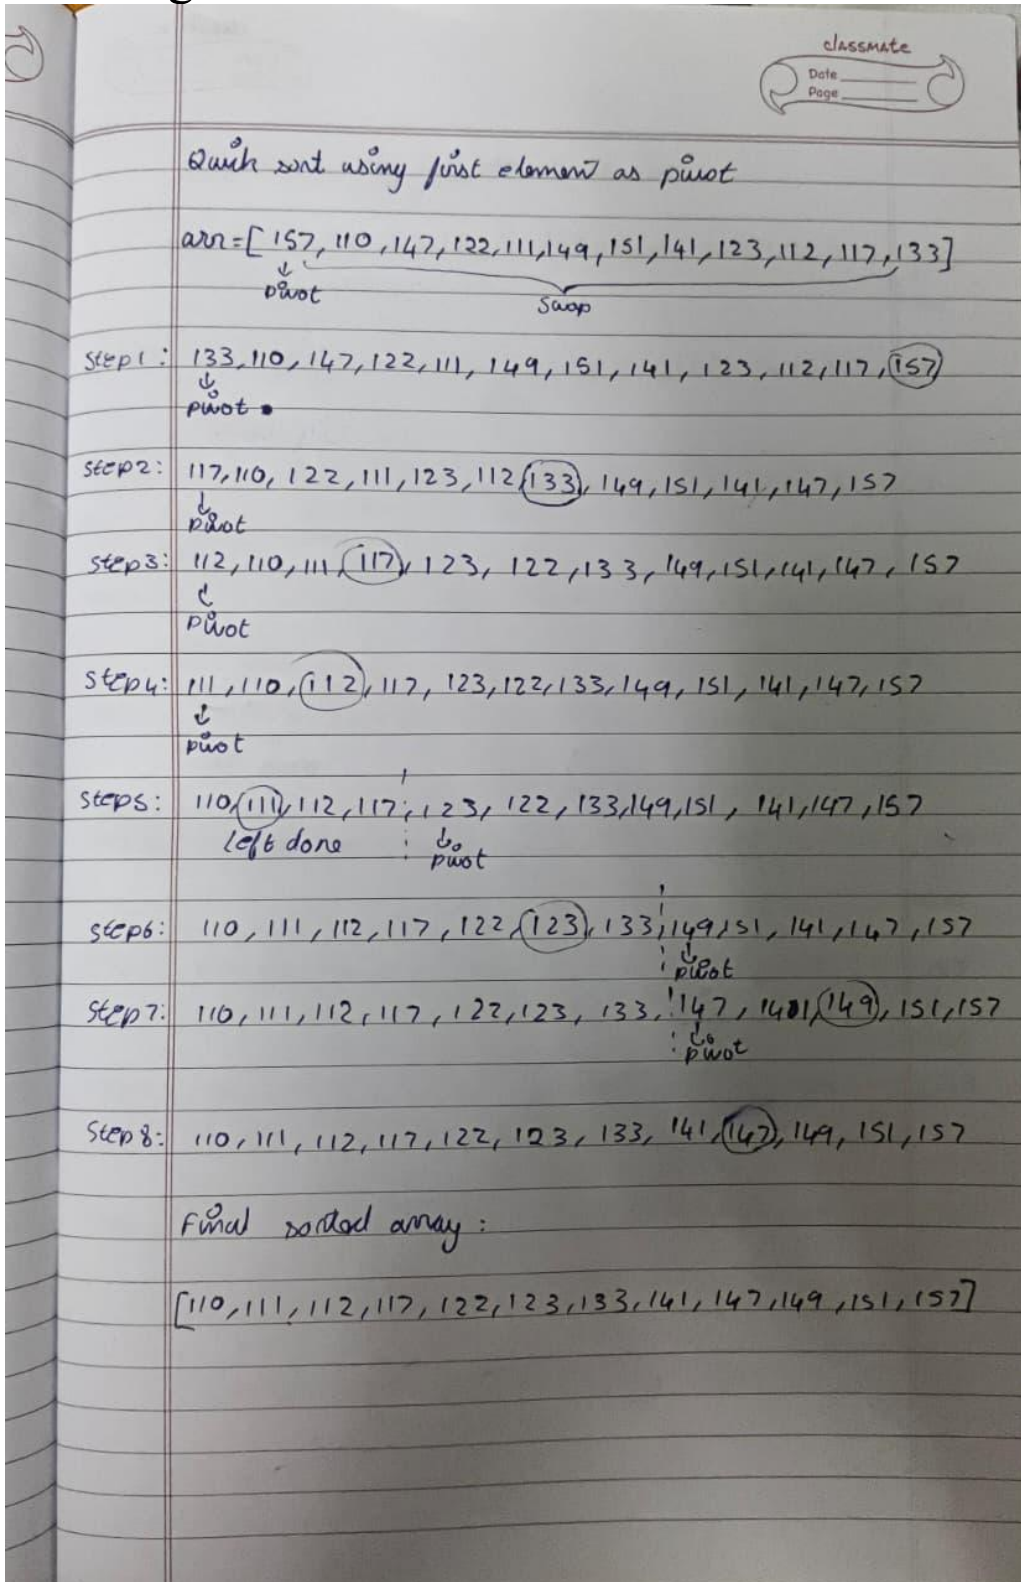 classmate
Date
Page
Quick sort using first element as pivot
arr=[157, 110, 147, 122, 111, 149, 151, 141, 123, 112, 117, 133]
pivot
swap
Step1: 133, 110, 147, 122, 111, 149, 151, 141, 123, 112, 117, 157
pivot
Step2: 117, 110, 122, 111, 123, 112, 133, 149, 151, 141, 147, 157
pivot
Step3: 112, 110, 111, 117, 123, 122, 133, 149, 151, 141, 147, 157
pivot
Step4: 111, 110, 112, 117, 123, 122, 133, 149, 151, 141, 147, 157
pivot
Step5: 110, 111, 112, 117, 123, 122, 133, 149, 151, 141, 147, 157
left done pivot
Step6: 110, 111, 112, 117, 122, 123, 133, 149, 151, 141, 147, 157
pivot
Step7: 110, 111, 112, 117, 122, 123, 133, 147, 141, 149, 151, 157
pivot
Step8: 110, 111, 112, 117, 122, 123, 133, 141, 147, 149, 151, 157
Final sorted array:
[110, 111, 112, 117, 122, 123, 133, 141, 147, 149, 151, 157]